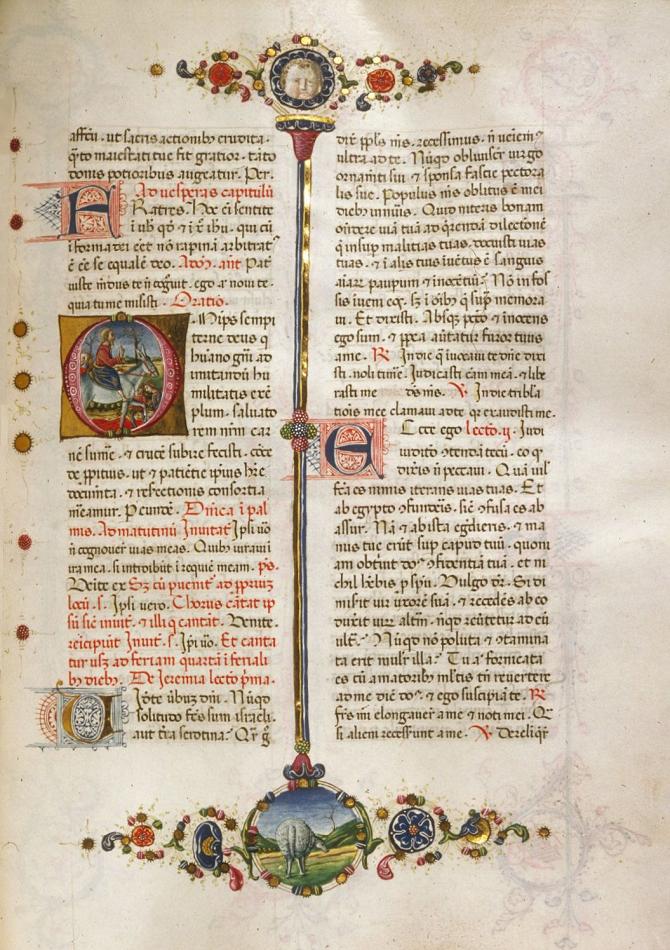 affcū. ut sacris actionibȝ erudita.
q̄to maiestati tue fit gratior. tāto
donis potioribus augeatur. Per.
Ad vesperas capitulū
FRatres. Hoc ei sentite
i ī xp̄o ihū. qui cū
i forma dei eēt nō rapinā arbitrat᷑
ē eē se equalē deo. ant Pat̄
iuste mūdus te n̄ cogūit. ego aū noui te.
quia tu me misisti. Oratio.
OMnips sempi
terne deus q
huāno gn̄i ad
imitandū hu
militatis exē
plum. saluato
rem nr̄m car
nē sumē. & crucē subire fecisti. cōce
de ꝓpitius. ut & patiētie ip̄ius hr̄e
docum̄ta. & resrectionis consortia
m̄eamur. P eundē. Dn̄ica ī pal
mis. Ad matutinū Inuitat̄ Ipsi uō
n̄ cognouer̄ uias meas. Quibȝ iuraui
ira mea. si introibūt ī requiē meam. ps.
Venite ex Sȝ cū puenit̄ ad ꝓprium
locū. s. Ipsi uero. Chorus cātat ip
sū sic inuit̄. & illi q cantāt. Venite.
reicipiūt Inuit̄. s. Ipi ūo. Et canta
tur usȝ ad feriam quartā ī feriali
bȝ diebȝ. De Jeremia lectō pma.
UIdete ūbuȝ dn̄i. Nūqd
solitudo fc̄s sum israeli.
aut tr̄a serotina? Qr̄ g̊
dix̄ ppl̄s m̄s. recessimus. n̄ ueiem᷒
ultra ad te. Nūqd obliuiscit̄ uirgo
ornam̄ti sui & sponsa fascie pectora
lis sue. Populus m̄s oblitus ē mei
diebȝ innūis. Quid niteris bonam
oñdere uiā tuā ad qrendā dilectionē
q̄ insup malitias tuas. docuisti uias
tuas. & ī alis tuis iuētus ē sanguis
aiarȝ paupum & inocētū? Nō in fos
sis iuēni eos. sȝ ī oībȝ q̄ sup memora
ui. Et dixisti. Absqȝ pctō & inocens
ego sum. & ppea auertatur furor tuus
a me. R Indie q̄ iuocaui te dn̄e dixi
sti. noli tim̄e. Iudicasti cām meā. & libe
rasti me ds m̄s. V. In die tribl̄a
tiōis mee clamaui ad te qr̄ exaudisti me.
ECce ego lectō. ij. Iudi
uidito ꝯtendā tecū. eo q̊
dix̄is n̄ peccaui. Quā uil᷑
fc̄a es nimis iterans uias tuas. Et
ab egypto ꝯfundēis. sic̄ ꝯfusa es ab
assur. Nā & ab ista egdiens. & ma
nus tue erūt sup caput tuū. quoni
am obtiuit dn̄s ꝯfidentiā tuā. et ni
chil hēbis pspū. Vulgo dr̄. Si di
miserit uir uxorē suā. & recedēs ab eo
duxit uirȝ altm̄. nūqd reūtetur ad eū
ult̄? Nūqd nō poluta & ꝯtamina
ta erit mulr̄ illa? Tu aū fornicata
es cū amatoribȝ ml̄tis tn̄ reuertere
ad me dic̄ dn̄s. & ego suscipiā te. R
Fr̄s m̄i elongauer̄ a me & noti mei. Qr̄
si alieni recesserunt a me. V. Dereliq̄r̄